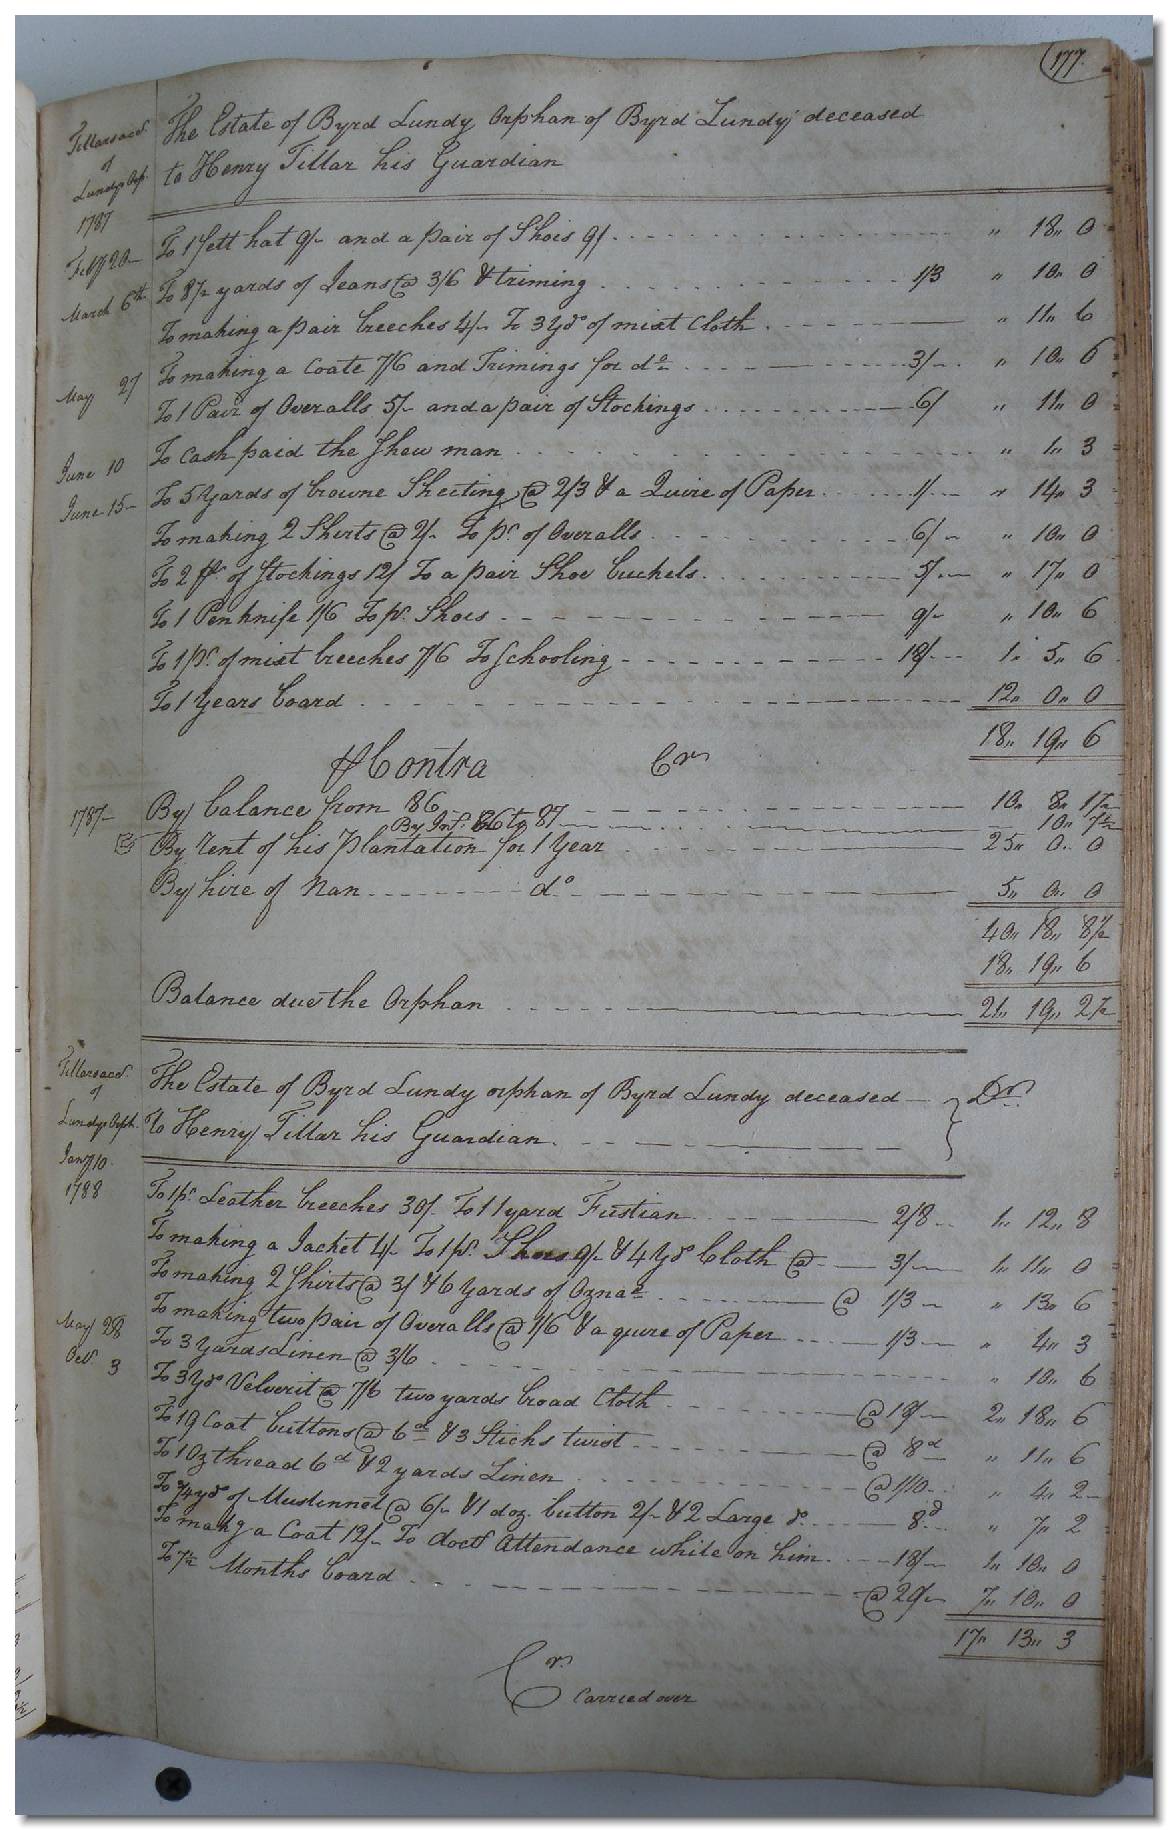 177
Tillars acct.
of
Lundys Orp.
1787
The Estate of Byrd Lundy Orphan of Byrd Lundy deceased
to Henry Tillar his Guardian
Feby 20 To 1 fett hat 9/- and a pair of Shoes 9/. " 18" 0
March 6th To 8½ yards of Jeans @ 3/6 & triming 1/3 " 10" 0
To making a pair breeches 4/- To 3 Yds of mixt Cloth " 11" 6
To making a Coate 7/6 and Trimings for do 3/- " 10" 6
May 27 To 1 Pair of Overalls 5/- and a pair of Stockings 6/ " 11" 0
To cash paid the Shew man " 1" 3
June 10 To 5 Yards of browne Sheeting @ 2/3 & a Quire of Paper 1/- " 14" 3
June 15 To making 2 Shirts @ 2/- To pr. of Overalls 6/- " 10" 0
To 2 pr. of Stockings 12/ To a pair Shoe buckels 5/- " 17" 0
To 1 Penknife 1/6 To pr. Shoes 9/- " 10" 6
To 1 pr. of mixt breeches 7/6 To Schooling 18/- 1" 5" 6
To 1 Years board 12" 0" 0
18" 19" 6
Contra Cr
1787 By balance from 86 10" 8" 1½
By Int. 86 to 87 10" 7½
By rent of his plantation for 1 Year 25" 0" 0
By hire of Nan do 5" 0" 0
40" 18" 8½
18" 19" 6
Balance due the Orphan 21" 19" 2½
Tillars acct.
of
Lundys Orph.
The Estate of Byrd Lundy orphan of Byrd Lundy deceased } Dr.
to Henry Tillar his Guardian
Jany 10
1788
To 1 pr. Leather breeches 30/. To 11 yard Fustian 2/8 1" 12" 8
To making a Jacket 4/- To 1 pr. Shoes 9/- & 4 Yds Cloth @ 3/- 1" 11" 0
To making 2 Shirts @ 3/ & 6 yards of Ozna @ 1/3 " 13" 6
To making two pair of Overalls @ 1/6 & a quire of Paper 1/3 " 4" 3
May 28 To 3 yards Linen @ 3/6 " 10" 6
Oct. 3 To 3 Yds Velverit @ 7/6 two yards broad Cloth @ 19/- 2" 18" 6
To 19 Coat buttons @ 6d & 3 Sticks twist @ 8d " 11" 6
To 1 Oz thread 6d & 2 yards Linen @ 1/10 " 4" 2
To ¾ yds of Muslinnet @ 6/- & 1 doz. button 2/- & 2 Large do 8d " 7" 2
To makg a Coat 12/- To doctr Attendance while on him 18/- 1" 10" 0
To 7½ Months board @ 20/- 7" 10" 0
17" 13" 3
Cr.
Carried over